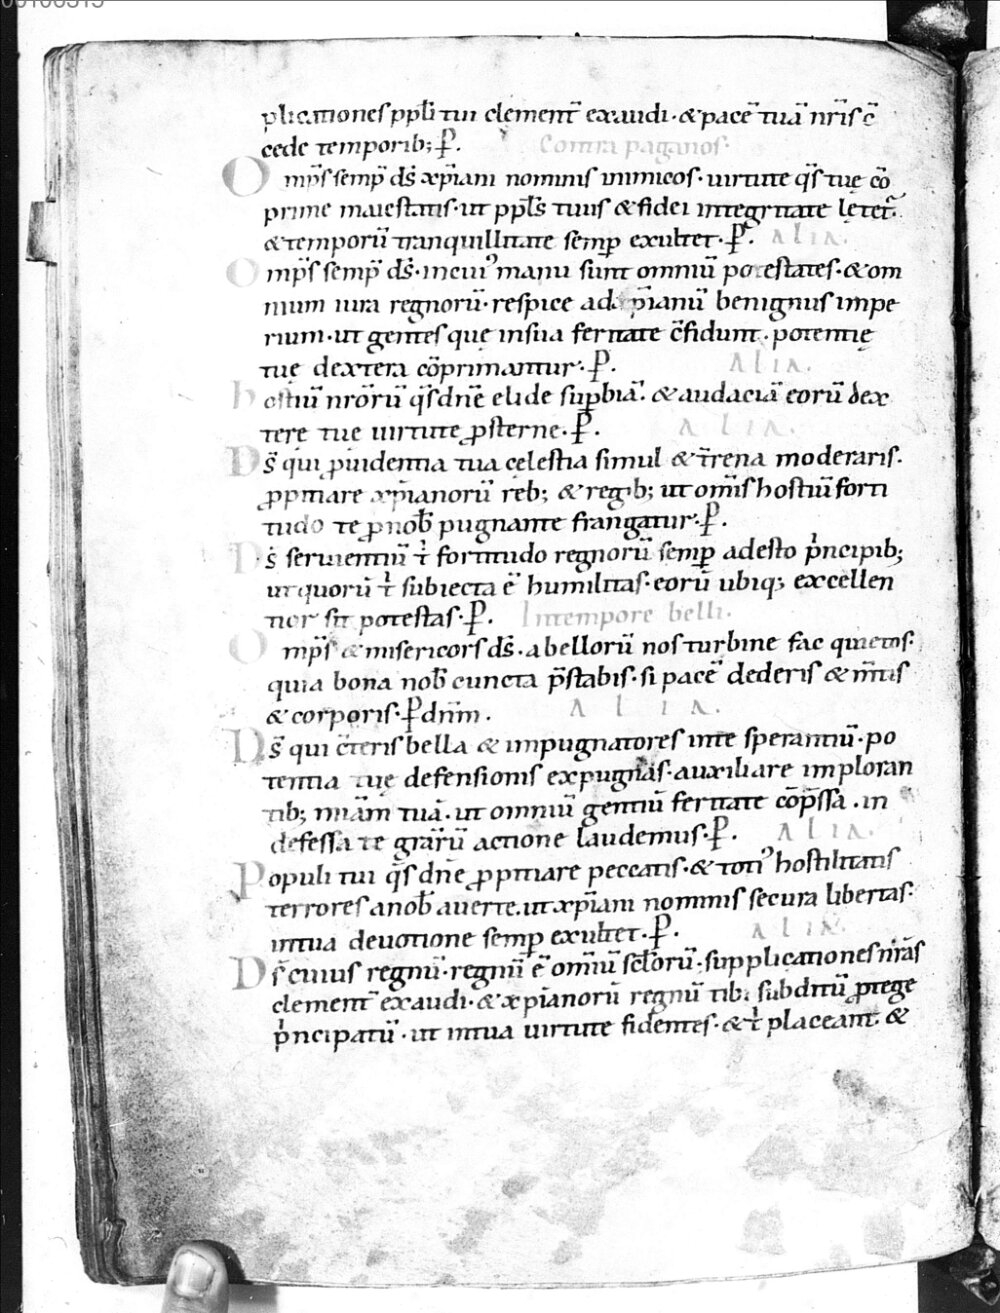 plicationes ppli tui clement̄ exaudi · & pacē tuā nr̄is c̄
cede temporib; P̄.   Contra paganos ·
Omp̄s semp̄ ds̄ xp̄iani nominis inimicos · uirtute qs̄ tuę cō
prime maiestatis · ut ppls̄ tuus & fidei integritate lętet̄ ·
& temporū tranquillitate semp exultet · P̄.   ALIA.
Omp̄s semp̄ ds̄ · in cui' manu sunt omniū potestates · & om
nium iura regnorū · respice ad xp̄ianū benignus impe
rium · ut gentes quę in sua feritate c̄fidunt · potentię
tuę dextera cōprimantur · P̄.   ALIA.
hostiū nrōrū qs̄ dnē elide supbiā · & audaciā eorū dex
tere tue uirtute psterne · P̄.   ALIA.
Ds̄ qui puidentia tua cęlestia simul & t̄rena moderaris ·
ppitiare xp̄ianorū reb; & regib; ut om̄is hostiū forti
tudo te p nob̄ pugnante frangatur · P̄.
Ds̄ seruientiū t̄ fortitudo regnorū semp adesto p̄ncipib;
ut quorū t̄ subiecta ē humilitas · eorū ubiq; excellen
tior sit potestas · P̄.   In tempore belli ·
Omp̄s & misericors ds̄ · a bellorū nos turbine fac quietos ·
quia bona nob̄ cuncta p̄stabis · si pacē dederis & m̄tis
& corporis · P̄ dn̄m .   ALIA.
Ds̄ qui c̄teris bella & impugnatores in te sperantiū · po
tentia tuę defensionis expugnas · auxiliare imploran
tib; miām tuā · ut omniū gentiū feritate cōp̄ssa · in
defessa te grār̄ū actione laudemus · P̄.   ALIA.
Populi tui qs̄ dnē ppitiare peccatis · & toti' hostilitatis
terrores a nob̄ auerte · ut xp̄iani nominis secura libertas ·
in tua deuotione semp exultet · P̄.   ALIA.
Ds̄ cuius regnū · regnū ē om̄iū sc̄lorū · supplicationes nrās
clement̄ exaudi · & xp̄ianorū regnū tibi subditū ptege
p̄ncipatū · ut in tua uirtute fidentes · & t̄ placeant · &